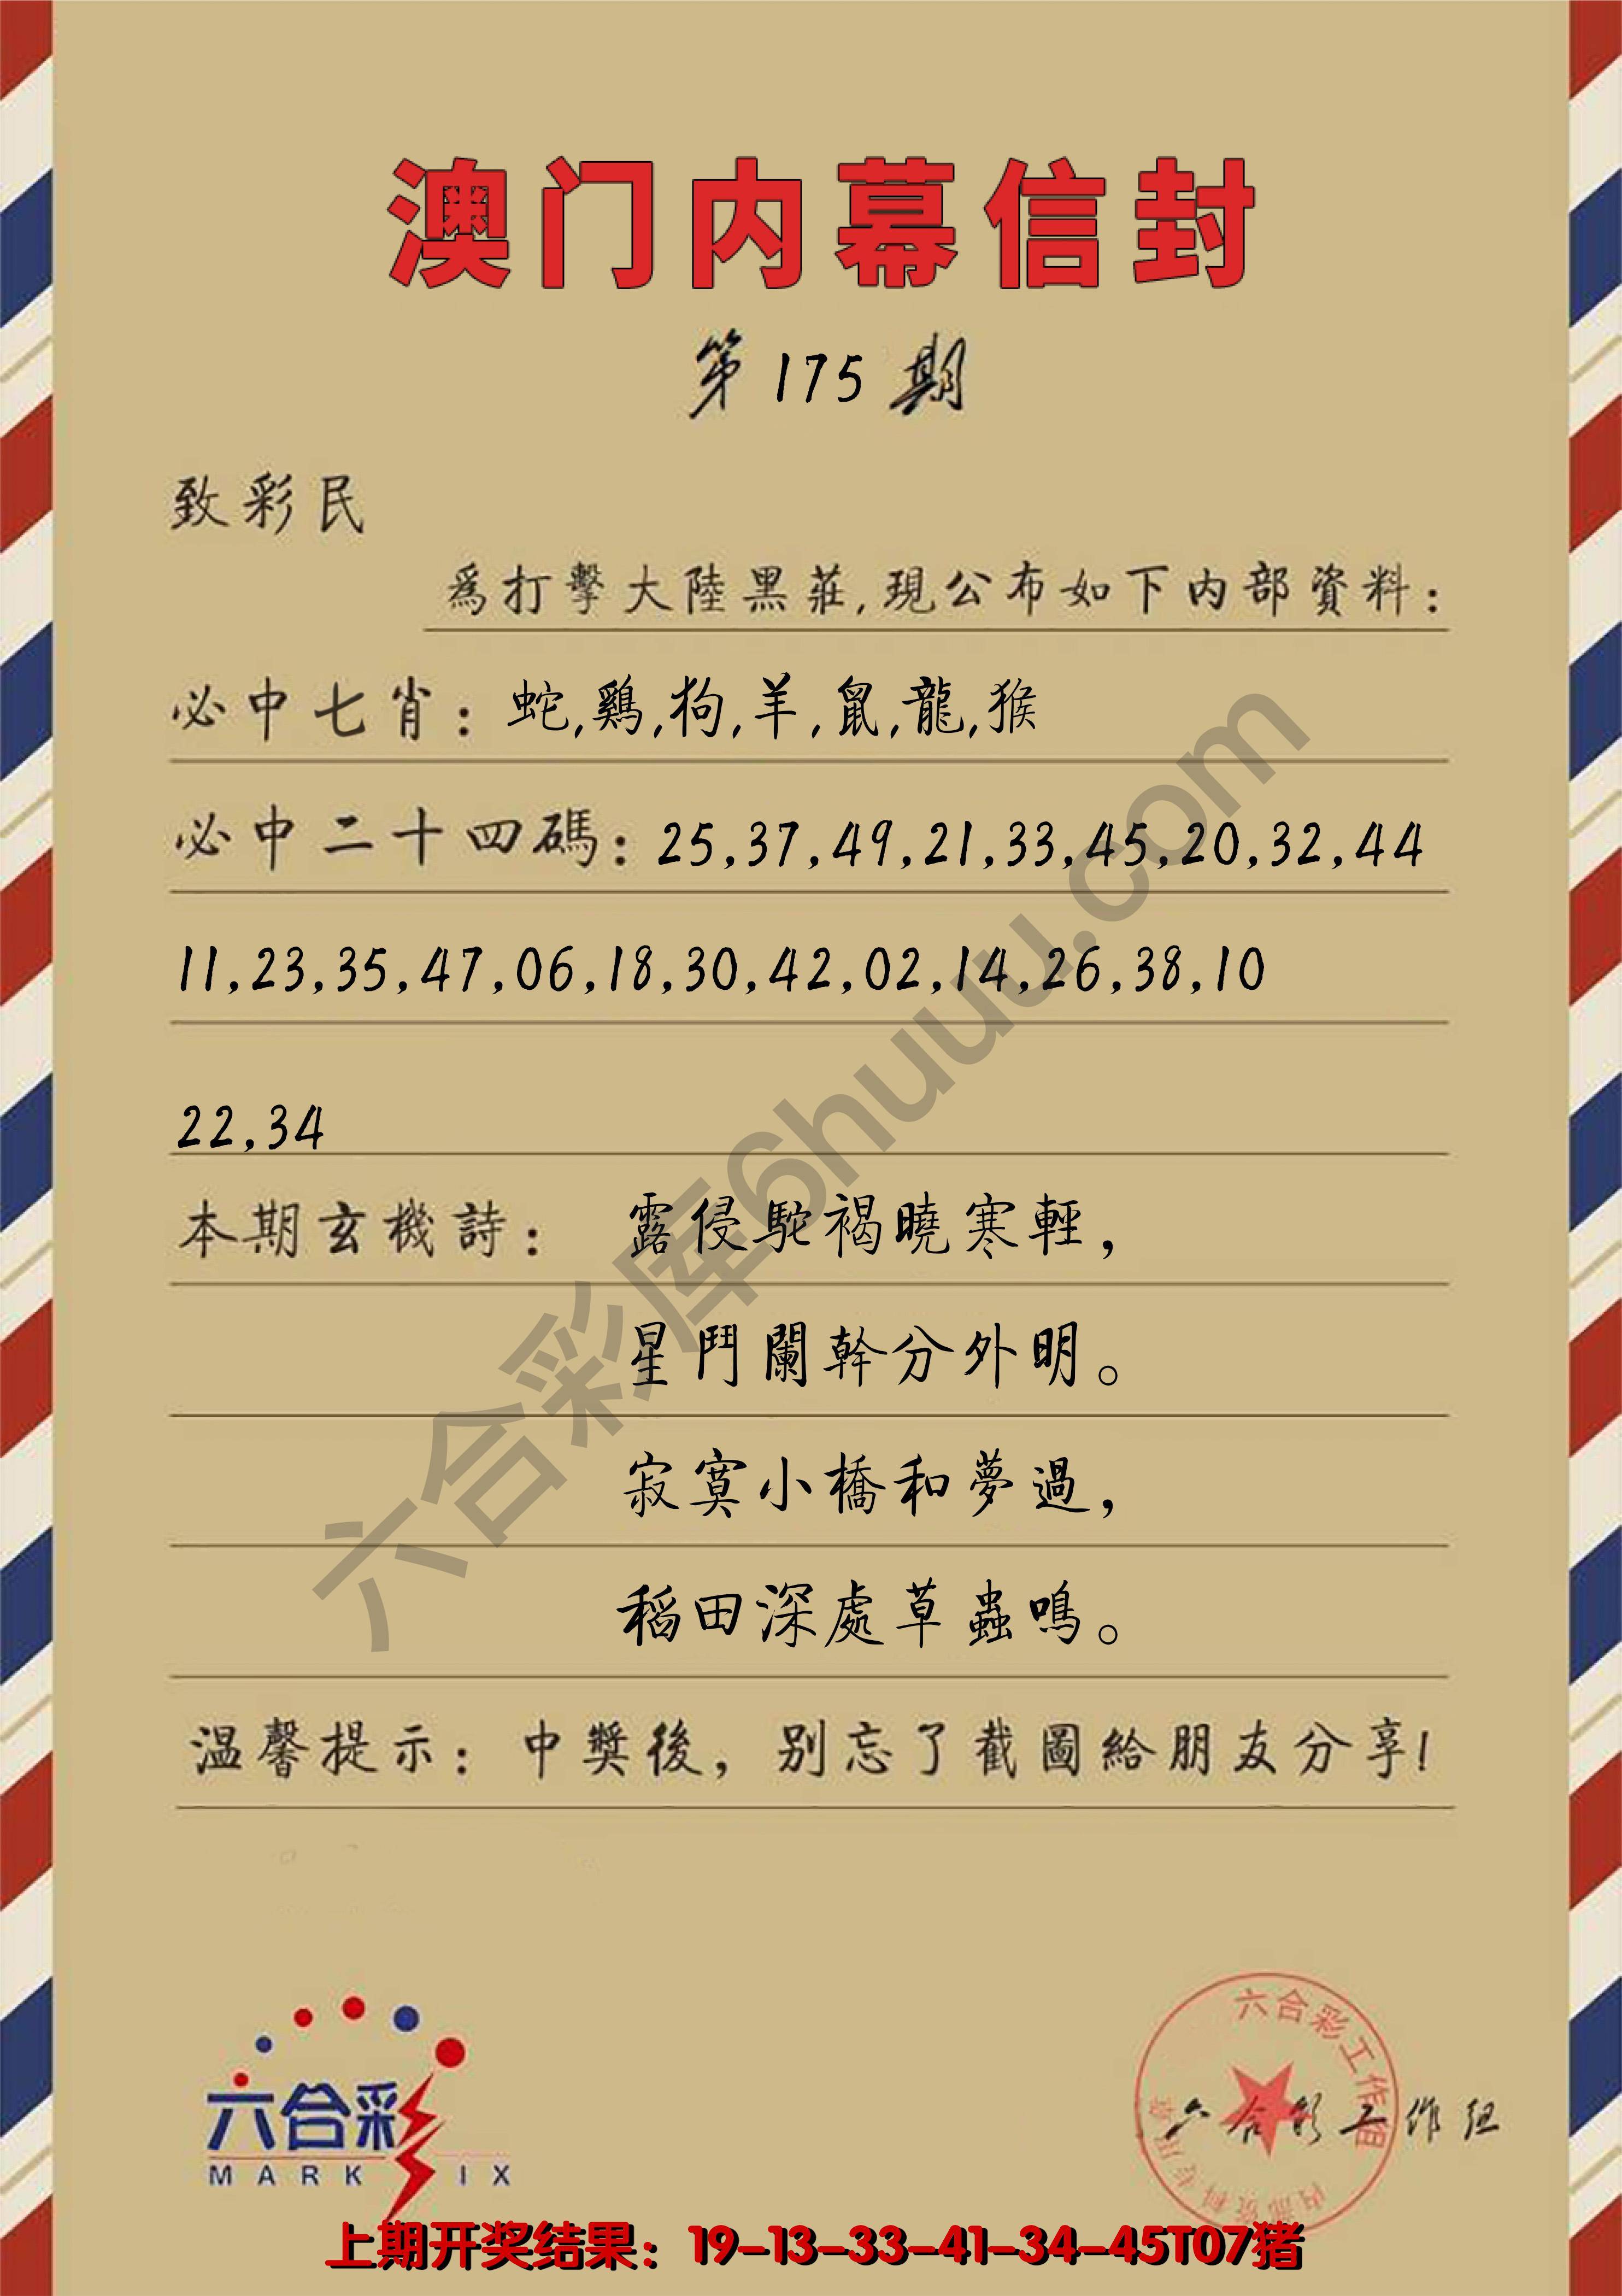 澳门内幕信封
第175期
致彩民
為打擊大陸黑莊,現公布如下内部資料:
必中七肖:蛇,鷄,狗,羊,鼠,龍,猴
必中二十四碼:25,37,49,21,33,45,20,32,44
11,23,35,47,06,18,30,42,02,14,26,38,10
22,34
本期玄機詩: 露侵駝褐曉寒輕,
星鬥闌幹分外明。
寂寞小橋和夢過,
稻田深處草蟲鳴。
温馨提示:中獎後,别忘了截圖給朋友分享!
六合彩库6huuu.com
六合彩
MARK IX
六合彩工作组
内部资料专用章
六合彩工作组
上期开奖结果：19-13-33-41-34-45T07猪